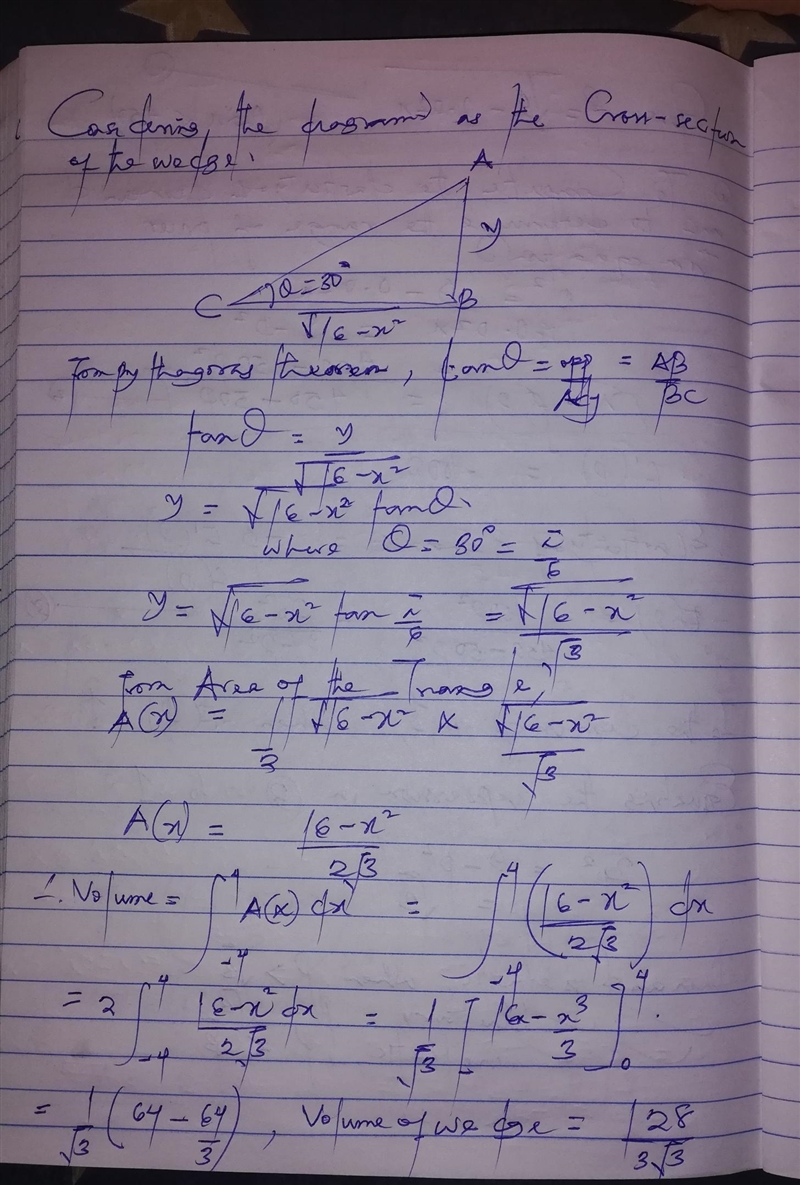 Considering, the diagramd as the Cross-section
of the wedge.
A
y
C θ=30° B
√16-x²
From Pythagoras theorem, tanθ = opp/Adj = AB/BC
tanθ = y/√16-x²
y = √16-x² tanθ.
where θ = 30° = π/6
y = √16-x² tan π/6 = √16-x²/√3
from Area of the Triangle,
A(x) = 1/2 √16-x² × √16-x²/√3
A(x) = 16-x²/2√3
∴ Volume = ∫₋₄⁴ A(x) dx = ∫₋₄⁴ (16-x²/2√3) dx
= 2 ∫₋₄⁴ 16-x² dx/2√3 = 1/√3 [16x - x³/3]₀⁴.
= 1/√3 (64 - 64/3), Volume of wedge = 128/3√3